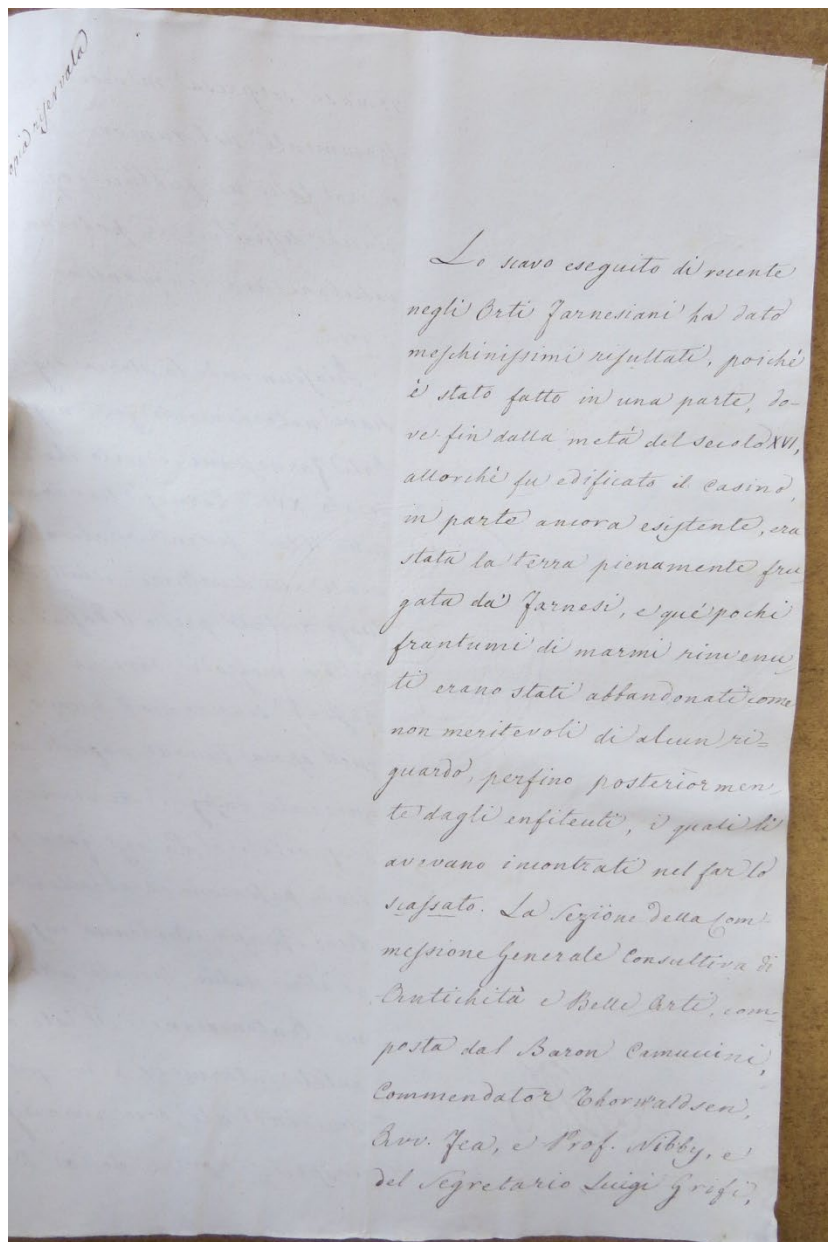 opia riservata
Lo scavo eseguito di recente
negli Orti Farnesiani ha dato
meschinissimi risultati, poiché
è stato fatto in una parte, do-
ve fin dalla metà del secolo XVI,
allorché fu edificato il casino,
in parte ancora esistente, era
stata la terra pienamente fru
gata da' Farnesi, e que' pochi
frantumi di marmi rinvenu
ti erano stati abbandonati come
non meritevoli di alcun ri=
guardo, perfino posteriormen
te dagli enfiteuti, i quali li
avevano incontrati nel far lo
scassato. La Sezione della Com-
messione Generale Consultiva di
Antichità e Belle Arti, com=
posta dal Baron Camuccini,
Commendator Thorwaldsen,
Avv. Fea, e Prof. Nibby, e
del Segretario Luigi Grifi,